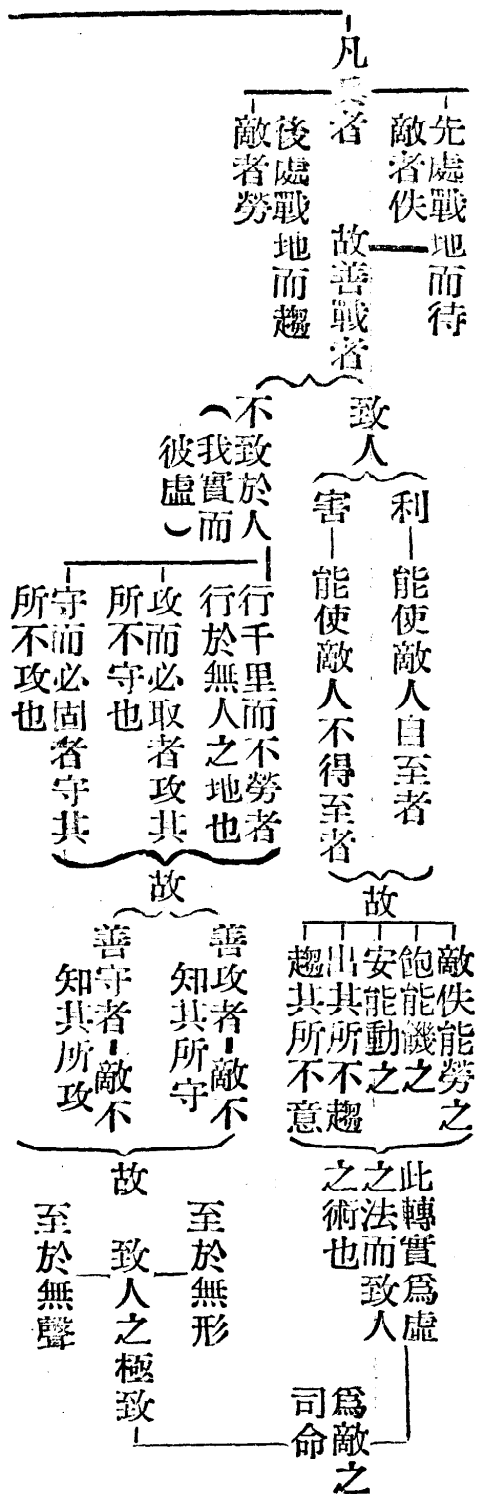 凡兵者
先處戰地而待
敵者佚
後處戰地而趨
敵者勞
故善戰者
致人
利
能使敵人自至者
害
能使敵人不得至者
故
敵佚能勞之
飽能饑之
安能動之
出其所不趨
趨其所不意
此轉實爲虛
之法而致人
之術也
不致於人
（我實而
彼虛）
行千里而不勞者
行於無人之地也
攻而必取者攻其
所不守也
守而必固者守其
所不攻也
故
善攻者
敵不
知其所守
善守者
敵不
知其所攻
故
至於無形
致人之極致
至於無聲
爲敵之
司命